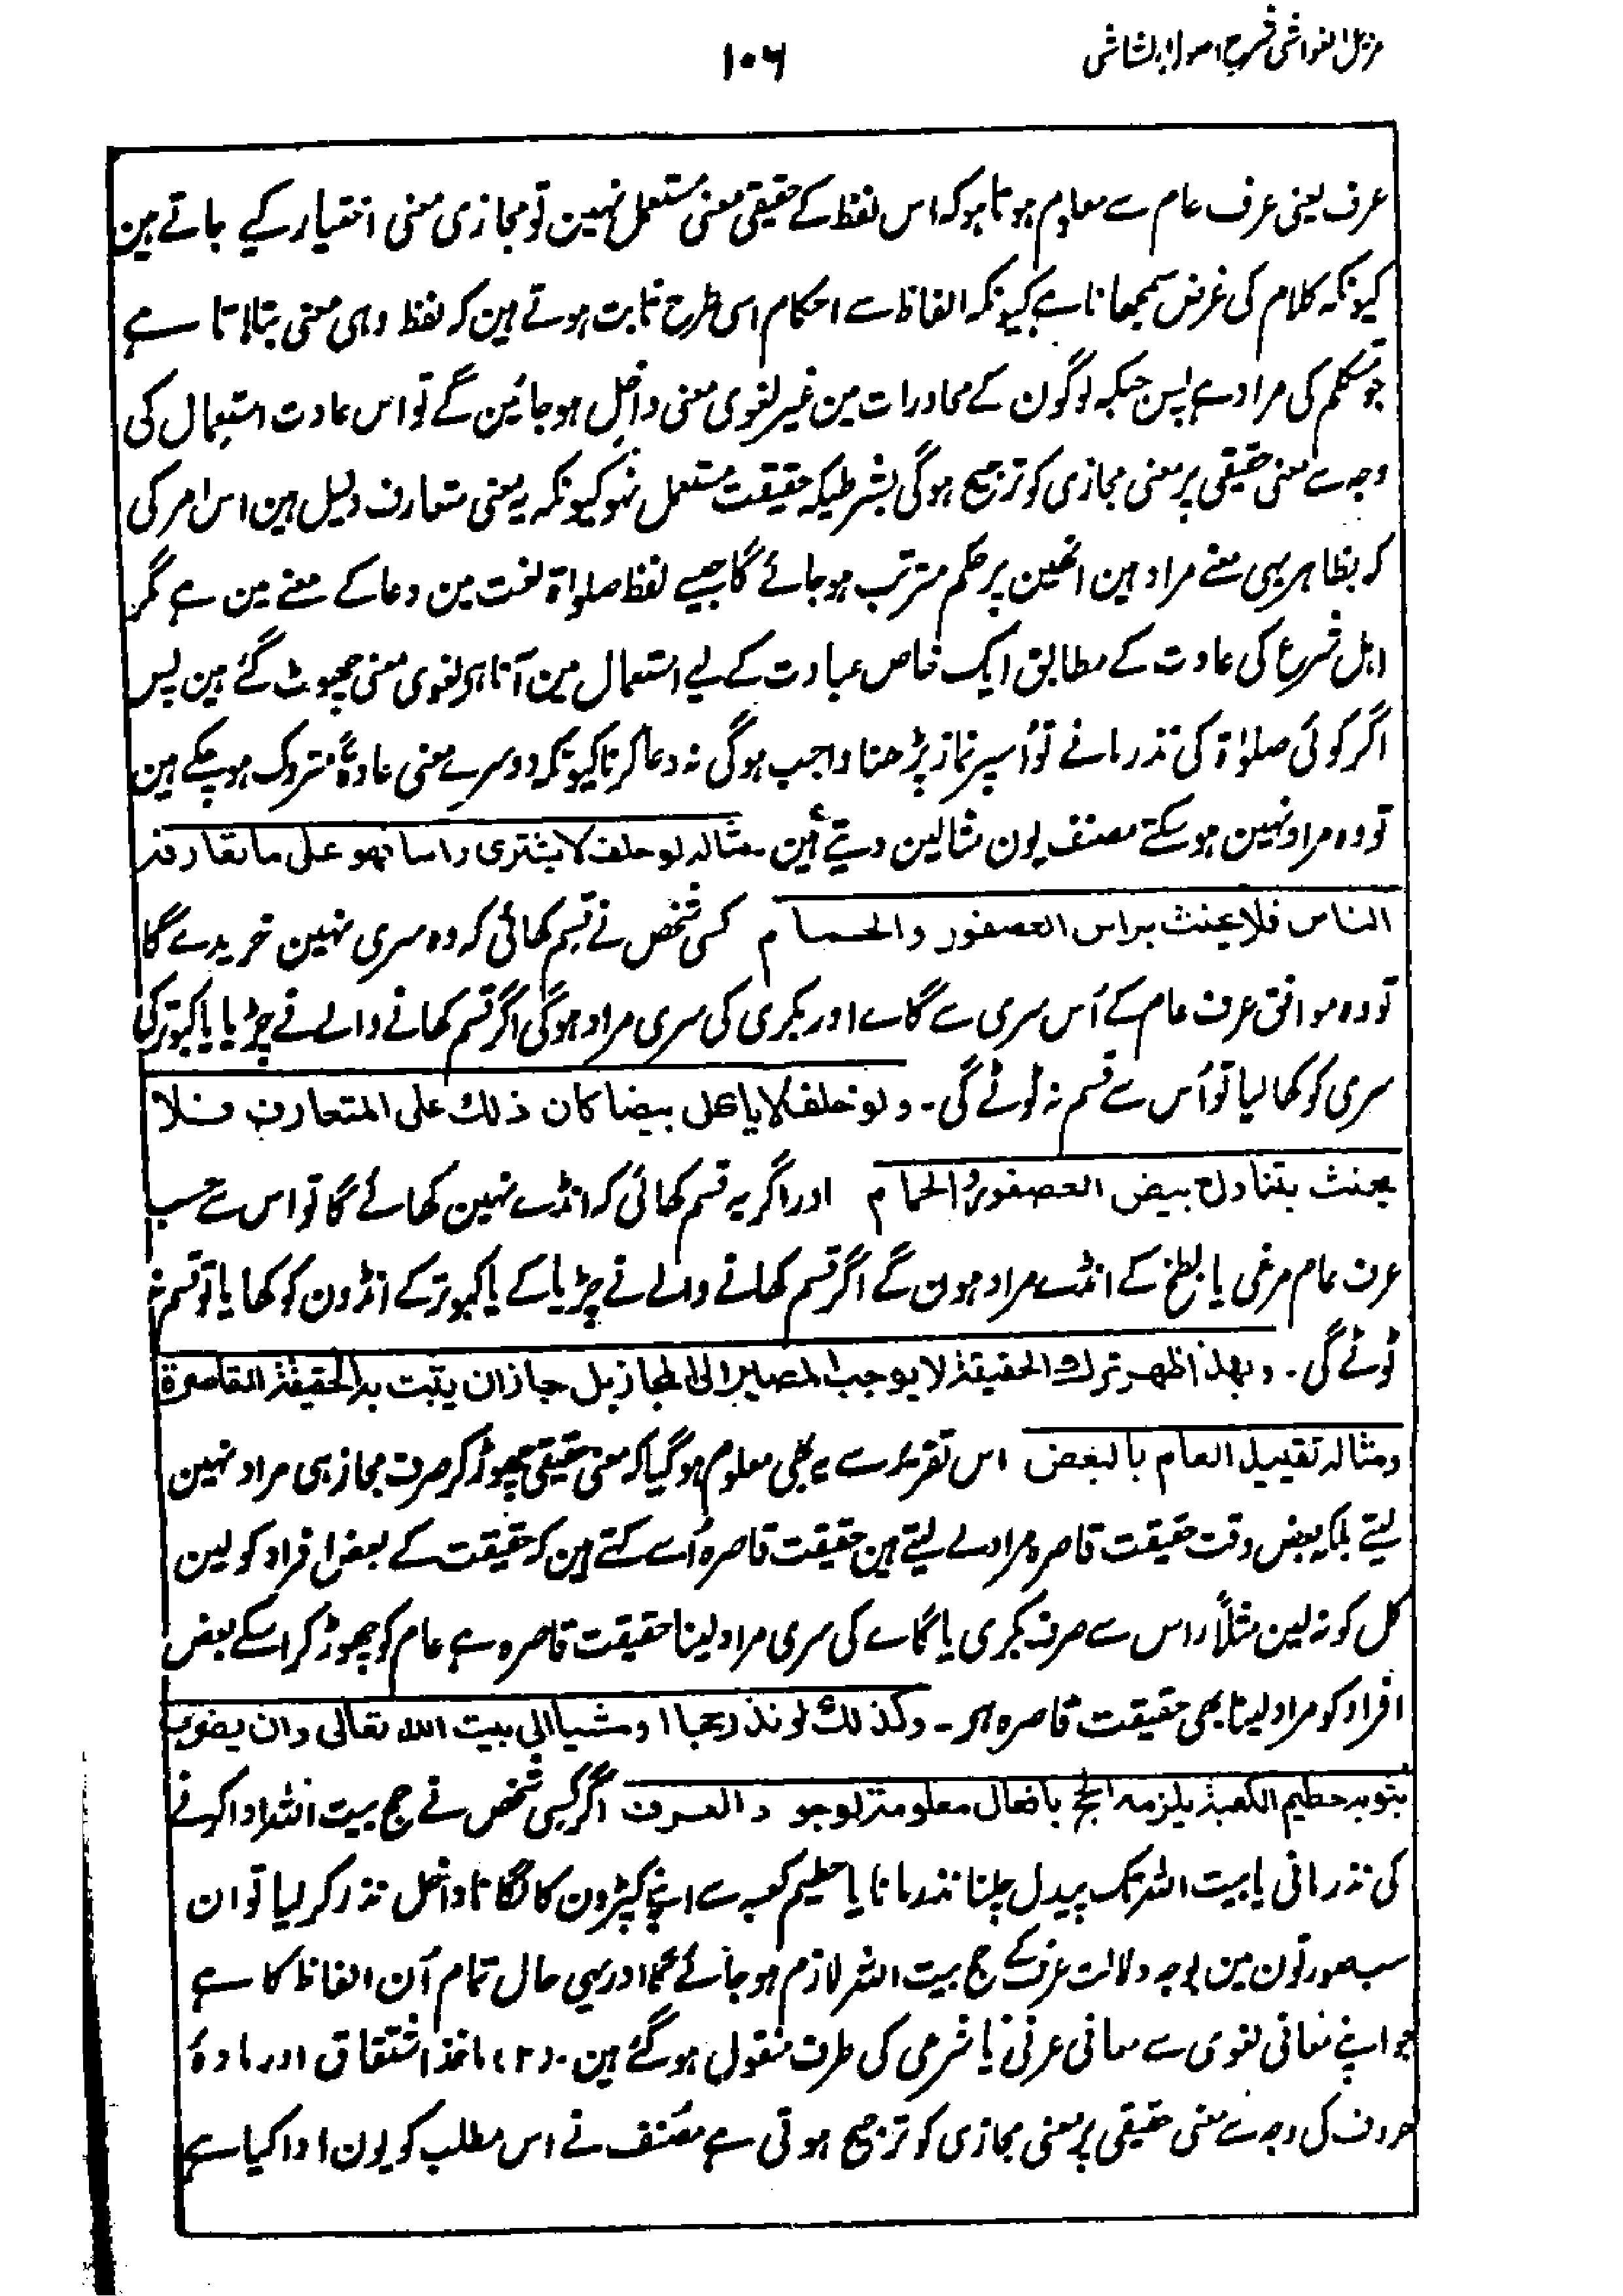 مزیل الغواشی شرح اصول الشاشی
۱۰۶
عرف یعنی عرف عام سے معلوم ہوتا ہو کہ اس لفظ کے حقیقی معنی مستعمل نہین تو مجازی معنی اختیار کیے جاتے ہین
کیونکہ کلام کی غرض سمجھانا ہے کیونکہ الفاظ سے احکام اسی طرح ثابت ہوتے ہین کہ لفظ وہی معنی بتلاتا ہے
جو متکلم کی مراد ہے پس جبکہ لوگون کے محاورات مین غیر لغوی معنی داخل ہو جائین گے تو اس عادت استعمال کی
وجہ سے معنی حقیقی پر معنی مجازی کو ترجیح ہوگی بشرطیکہ حقیقت مستعمل نہو کیونکہ یہ معنی متعارف دلیل ہین اس امر کی
کہ بظاہر یہی معنے مراد ہین انھین پر حکم مترتب ہو جائے گا جیسے لفظ صلواۃ لغت مین دعا کے معنے مین ہے مگر
اہل شرع کی عادت کے مطابق ایک خاص عبادت کے لیے استعمال مین آتا ہے لغوی معنی چھوٹ گئے ہین پس
اگر کوئی صلوٰۃ کی نذر مانے تو اُسپر نماز پڑھنا واجب ہوگی نہ دعا کرنا کیونکہ دوسرے معنی عادۃً متروک ہو چکے ہین
تو وہ مراد نہین ہو سکتے مصنف یون مثالین دیتے ہین مثالہ لو حلف لا یشتری راسا فھو علی ما تعارفہ
الناس فلا یحنث براس العصفور والحمام کسی شخص نے قسم کھائی کہ وہ سری نہین خریدے گا
تو وہ موافق عرف عام کے اُس سری سے گاے اور بکری کی سری مراد ہوگی اگر قسم کھانے والے نے چڑیا یا کبوتر کی
سری کو کھا لیا تو اُس سے قسم نہ ٹوٹے گی۔ ولو حلف لا یاکل بیضا کان ذلک علی المتعارف فلا
یحنث بتناول بیض العصفور والحمام اور اگر یہ قسم کھائی کہ انڈے نہین کھائے گا تو اس سے حسب
عرف عام مرغی یا بطخ کے انڈے مراد ہون گے اگر قسم کھانے والے نے چڑیا کے یا کبوتر کے انڈون کو کھایا تو قسم نہ
ٹوٹے گی۔ وبھذا ظھر ترک الحقیقۃ لا یوجب المصیر الی المجاز بل جاز ان یثبت بہ الحقیقۃ القاصرۃ
ومثالہ تقیید العام بالبعض اس تقریر سے یہ بھی معلوم ہو گیا کہ معنی حقیقی چھوڑ کر صرف مجاز ہی مراد نہین
لیتے بلکہ بعض وقت حقیقت قاصرہ مراد لے لیتے ہین حقیقت قاصرہ اُسے کہتے ہین کہ حقیقت کے بعض افراد کو لین
کل کو نہ لین مثلاً راس سے صرف بکری یا گاے کی سری مراد لینا حقیقت قاصرہ ہے عام کو چھوڑ کر اسکے بعض
افراد کو مراد لینا بھی حقیقت قاصرہ ہے۔ وکذلک لو نذر حجا او مشیا الی بیت اللہ تعالی وان یضرب
بثوبہ حطیم الکعبۃ یلزمہ الحج بافعال معلومۃ لوجود العرف اگر کسی شخص نے حج بیت اللہ ادا کرنے
کی نذر مانی یا بیت اللہ تک پیدل چلنا نذر مانا یا حطیم کعبہ سے اپنے کپڑون کا لگانا داخل نذر کر لیا تو ان
سب صورتون مین بوجہ دلالت عرف کے حج بیت اللہ لازم ہو جائے گا اور یہی حال تمام اُن الفاظ کا ہے
جو اپنے معانی لغوی سے معانی عرفی یا شرعی کی طرف منقول ہو گئے ہین۔ (۲) ماخذ اشتقاق اور مادۂ
حروف کی وجہ سے معنی حقیقی پر معنی مجازی کو ترجیح ہوتی ہے مصنف نے اس مطلب کو یون ادا کیا ہے